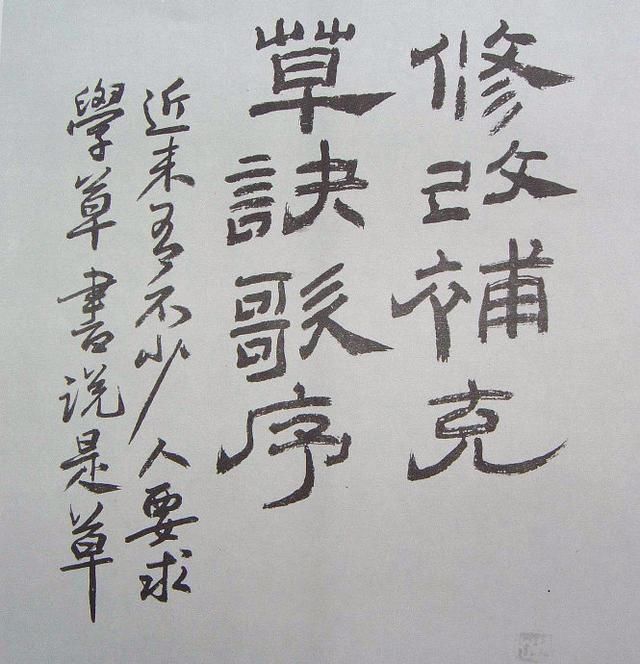 修改補充
草訣歌序
近来有不少人要求
學草書说是草